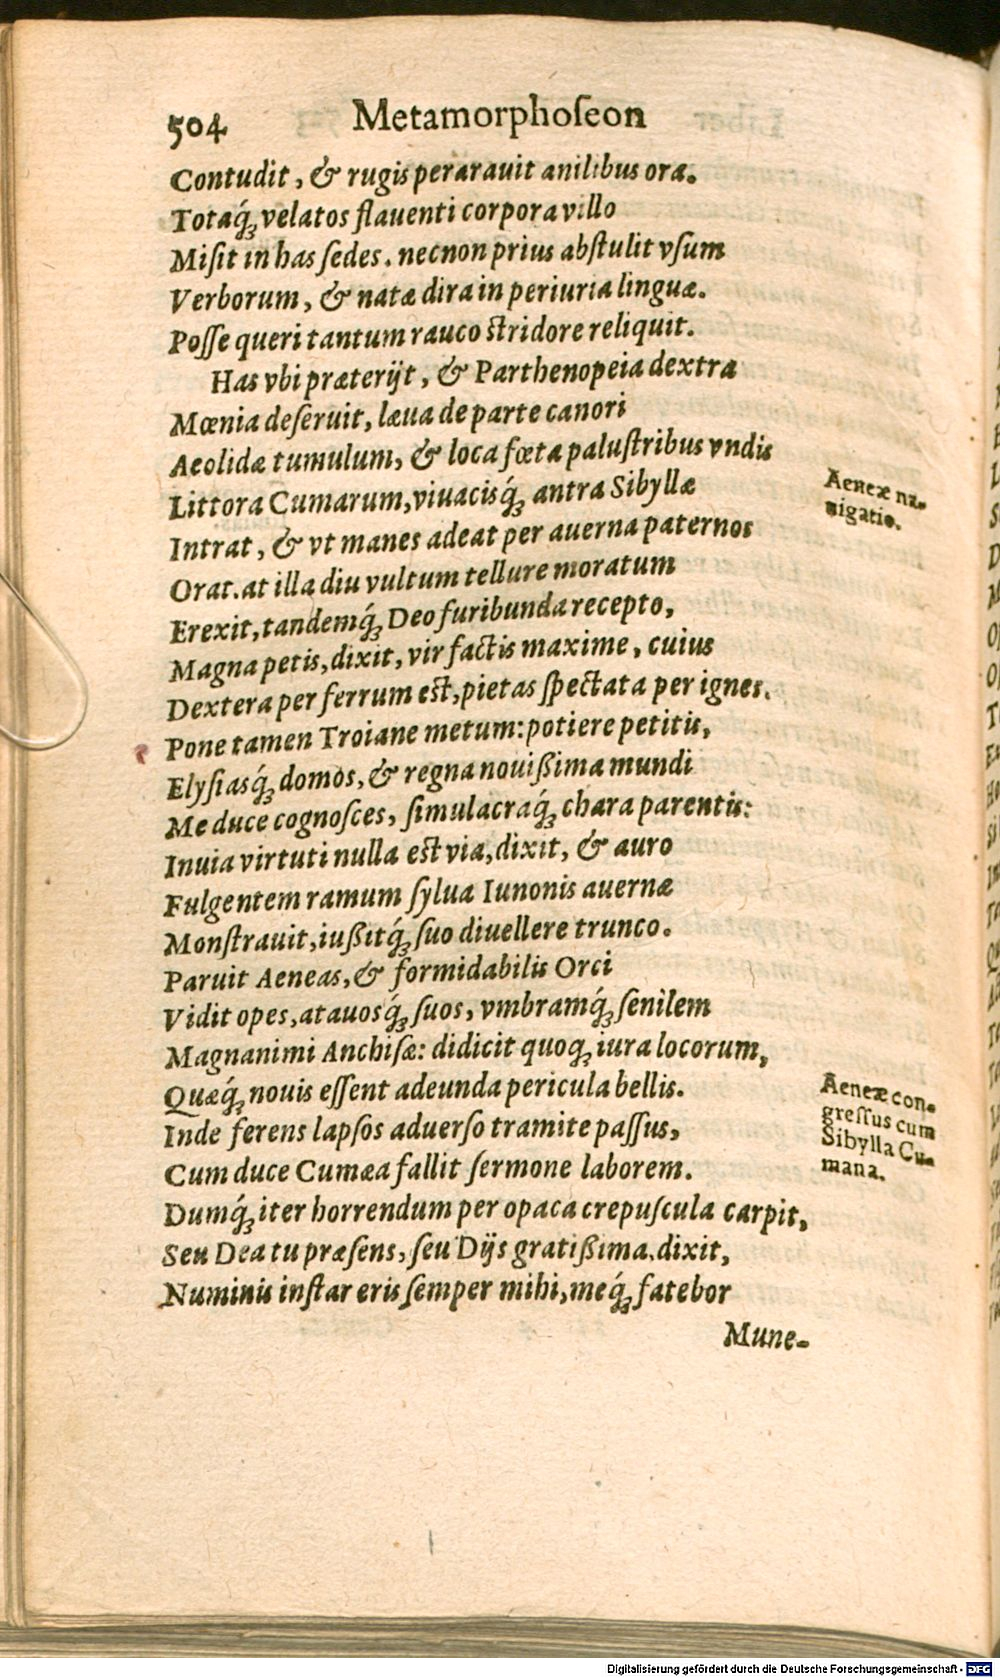 504 Metamorphoſeon
Contudit, & rugis perarauit anilibus ora.
Totaq́; velatos flauenti corpora villo
Miſit in has ſedes. necnon prius abſtulit vſum
Verborum, & natæ dira in periuria linguæ.
Poſſe queri tantum rauco ſtridore reliquit.
Has vbi præterijt, & Parthenopeia dextra
Mœnia deſeruit, læua de parte canori
Aeolidæ tumulum, & loca fœta paluſtribus vndis
Littora Cumarum, viuacisq́; antra Sibyllæ
Aeneæ na-
uigatio.
Intrat, & vt manes adeat per auerna paternos
Orat. at illa diu vultum tellure moratum
Erexit, tandemq́; Deo furibunda recepto,
Magna petis, dixit, vir factis maxime, cuius
Dextera per ferrum eſt, pietas ſpectata per ignes.
Pone tamen Troiane metum: potiere petitis,
Elyſiasq́; domos, & regna nouißima mundi
Me duce cognoſces, ſimulacraq́; chara parentis:
Inuia virtuti nulla eſt via, dixit, & auro
Fulgentem ramum ſylua Iunonis auernæ
Monſtrauit, iußitq́; ſuo diuellere trunco.
Paruit Aeneas, & formidabilis Orci
Vidit opes, atauosq́; ſuos, vmbramq́; ſenilem
Magnanimi Anchiſæ: didicit quoq; iura locorum,
Quæq́; nouis eſſent adeunda pericula bellis.
Inde ferens lapſos aduerſo tramite paſſus,
Aeneæ con-
greſſus cum
Sibylla Cu-
mana.
Cum duce Cumæa fallit ſermone laborem.
Dumq́; iter horrendum per opaca crepuſcula carpit,
Seu Dea tu præſens, ſeu Dijs gratißima, dixit,
Numinis inſtar eris ſemper mihi, meq́; fatebor
Mune-
Digitalisierung gefördert durch die Deutsche Forschungsgemeinschaft - DFG